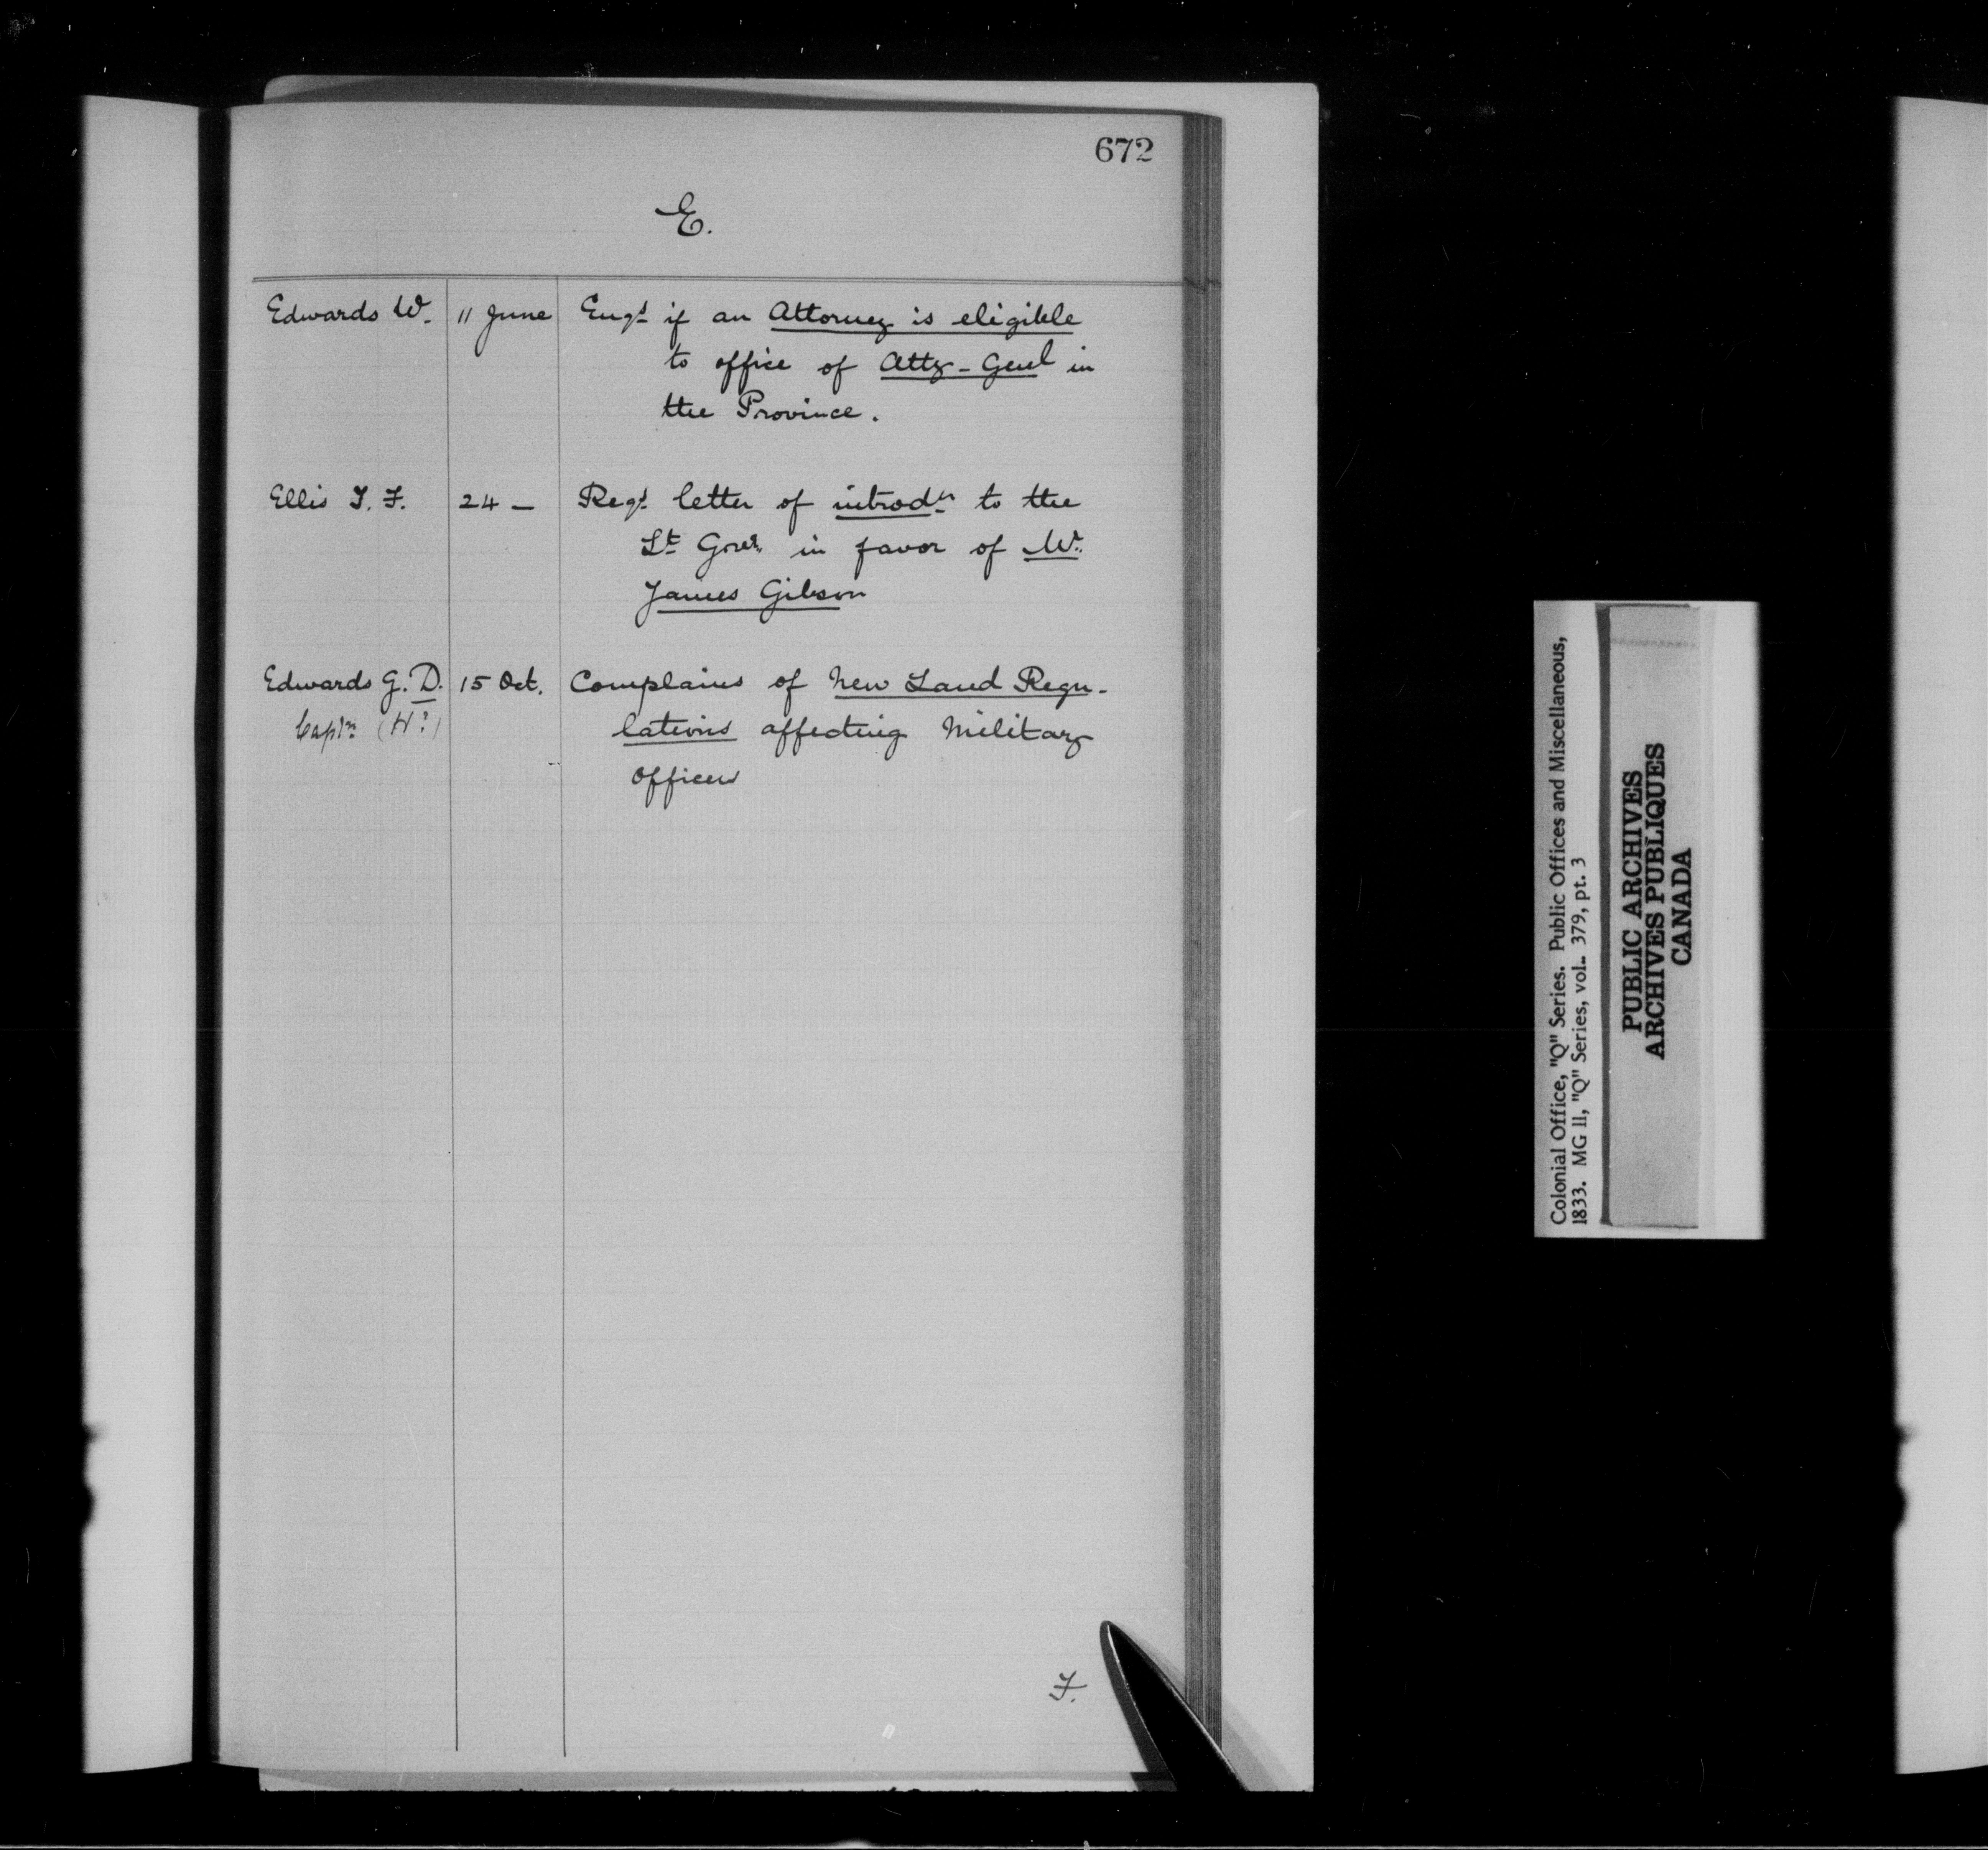 672
E.
Edwards W. 11 June Enqs if an Attorney is eligible
to office of Atty-Genl in
the Province.
Ellis T. F. 24 — Reqs letter of introdn to the
Lt Govr. in favor of Mr.
James Gibson
Edwards G. D. 15 Oct. Complains of New Land Regu-
Captn (H?) lations affecting Military
Officers
F.
Colonial Office, "Q" Series. Public Offices and Miscellaneous,
1833. MG 11, "Q" Series, vol. 379, pt. 3
PUBLIC ARCHIVES
ARCHIVES PUBLIQUES
CANADA